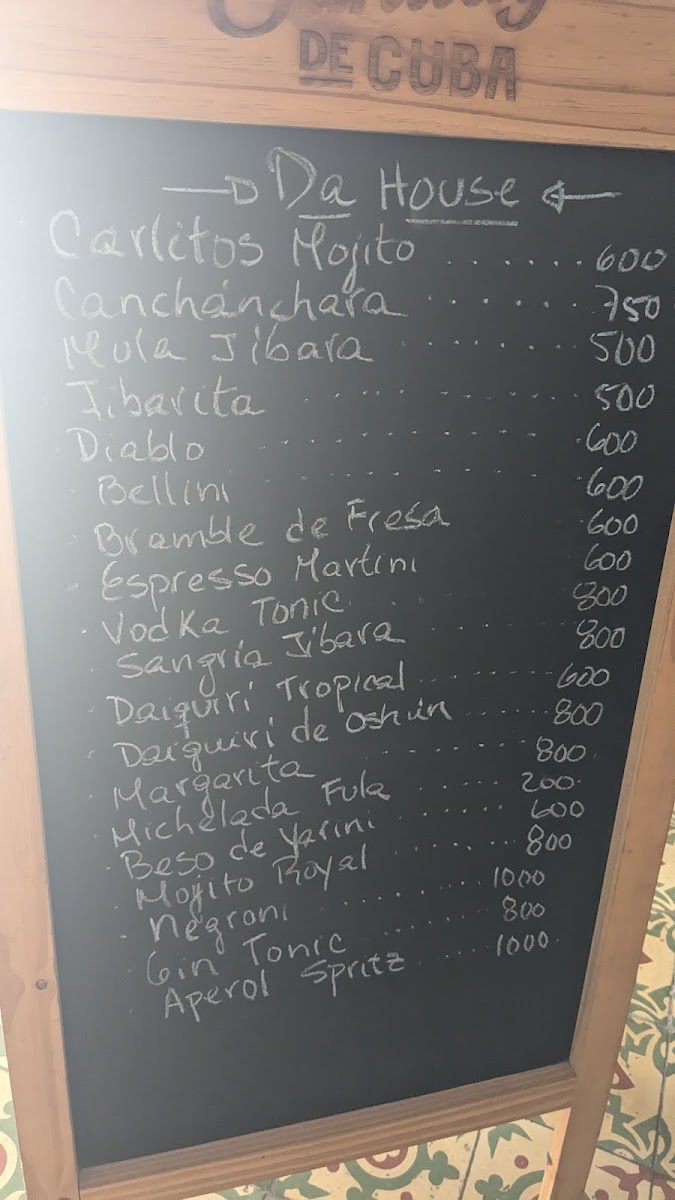 DE CUBA
Da House
Carlitos Mojito ....... 600
Canchánchara ....... 750
Mula Jíbara ....... 500
Jibarita ....... 500
Diablo ....... 600
Bellini ....... 600
Bramble de Fresa 600
Espresso Martini 600
Vodka Tonic ....... 800
Sangría Jíbara ....... 800
Daiquirí Tropical ....... 600
Daiquirí de Oshún ....... 800
Margarita ....... 800
Michelada Fula ....... 200
Beso de Yarini ....... 600
Mojito Royal ....... 800
Negroni ....... 1000
Gin Tonic ....... 800
Aperol Spritz ....... 1000